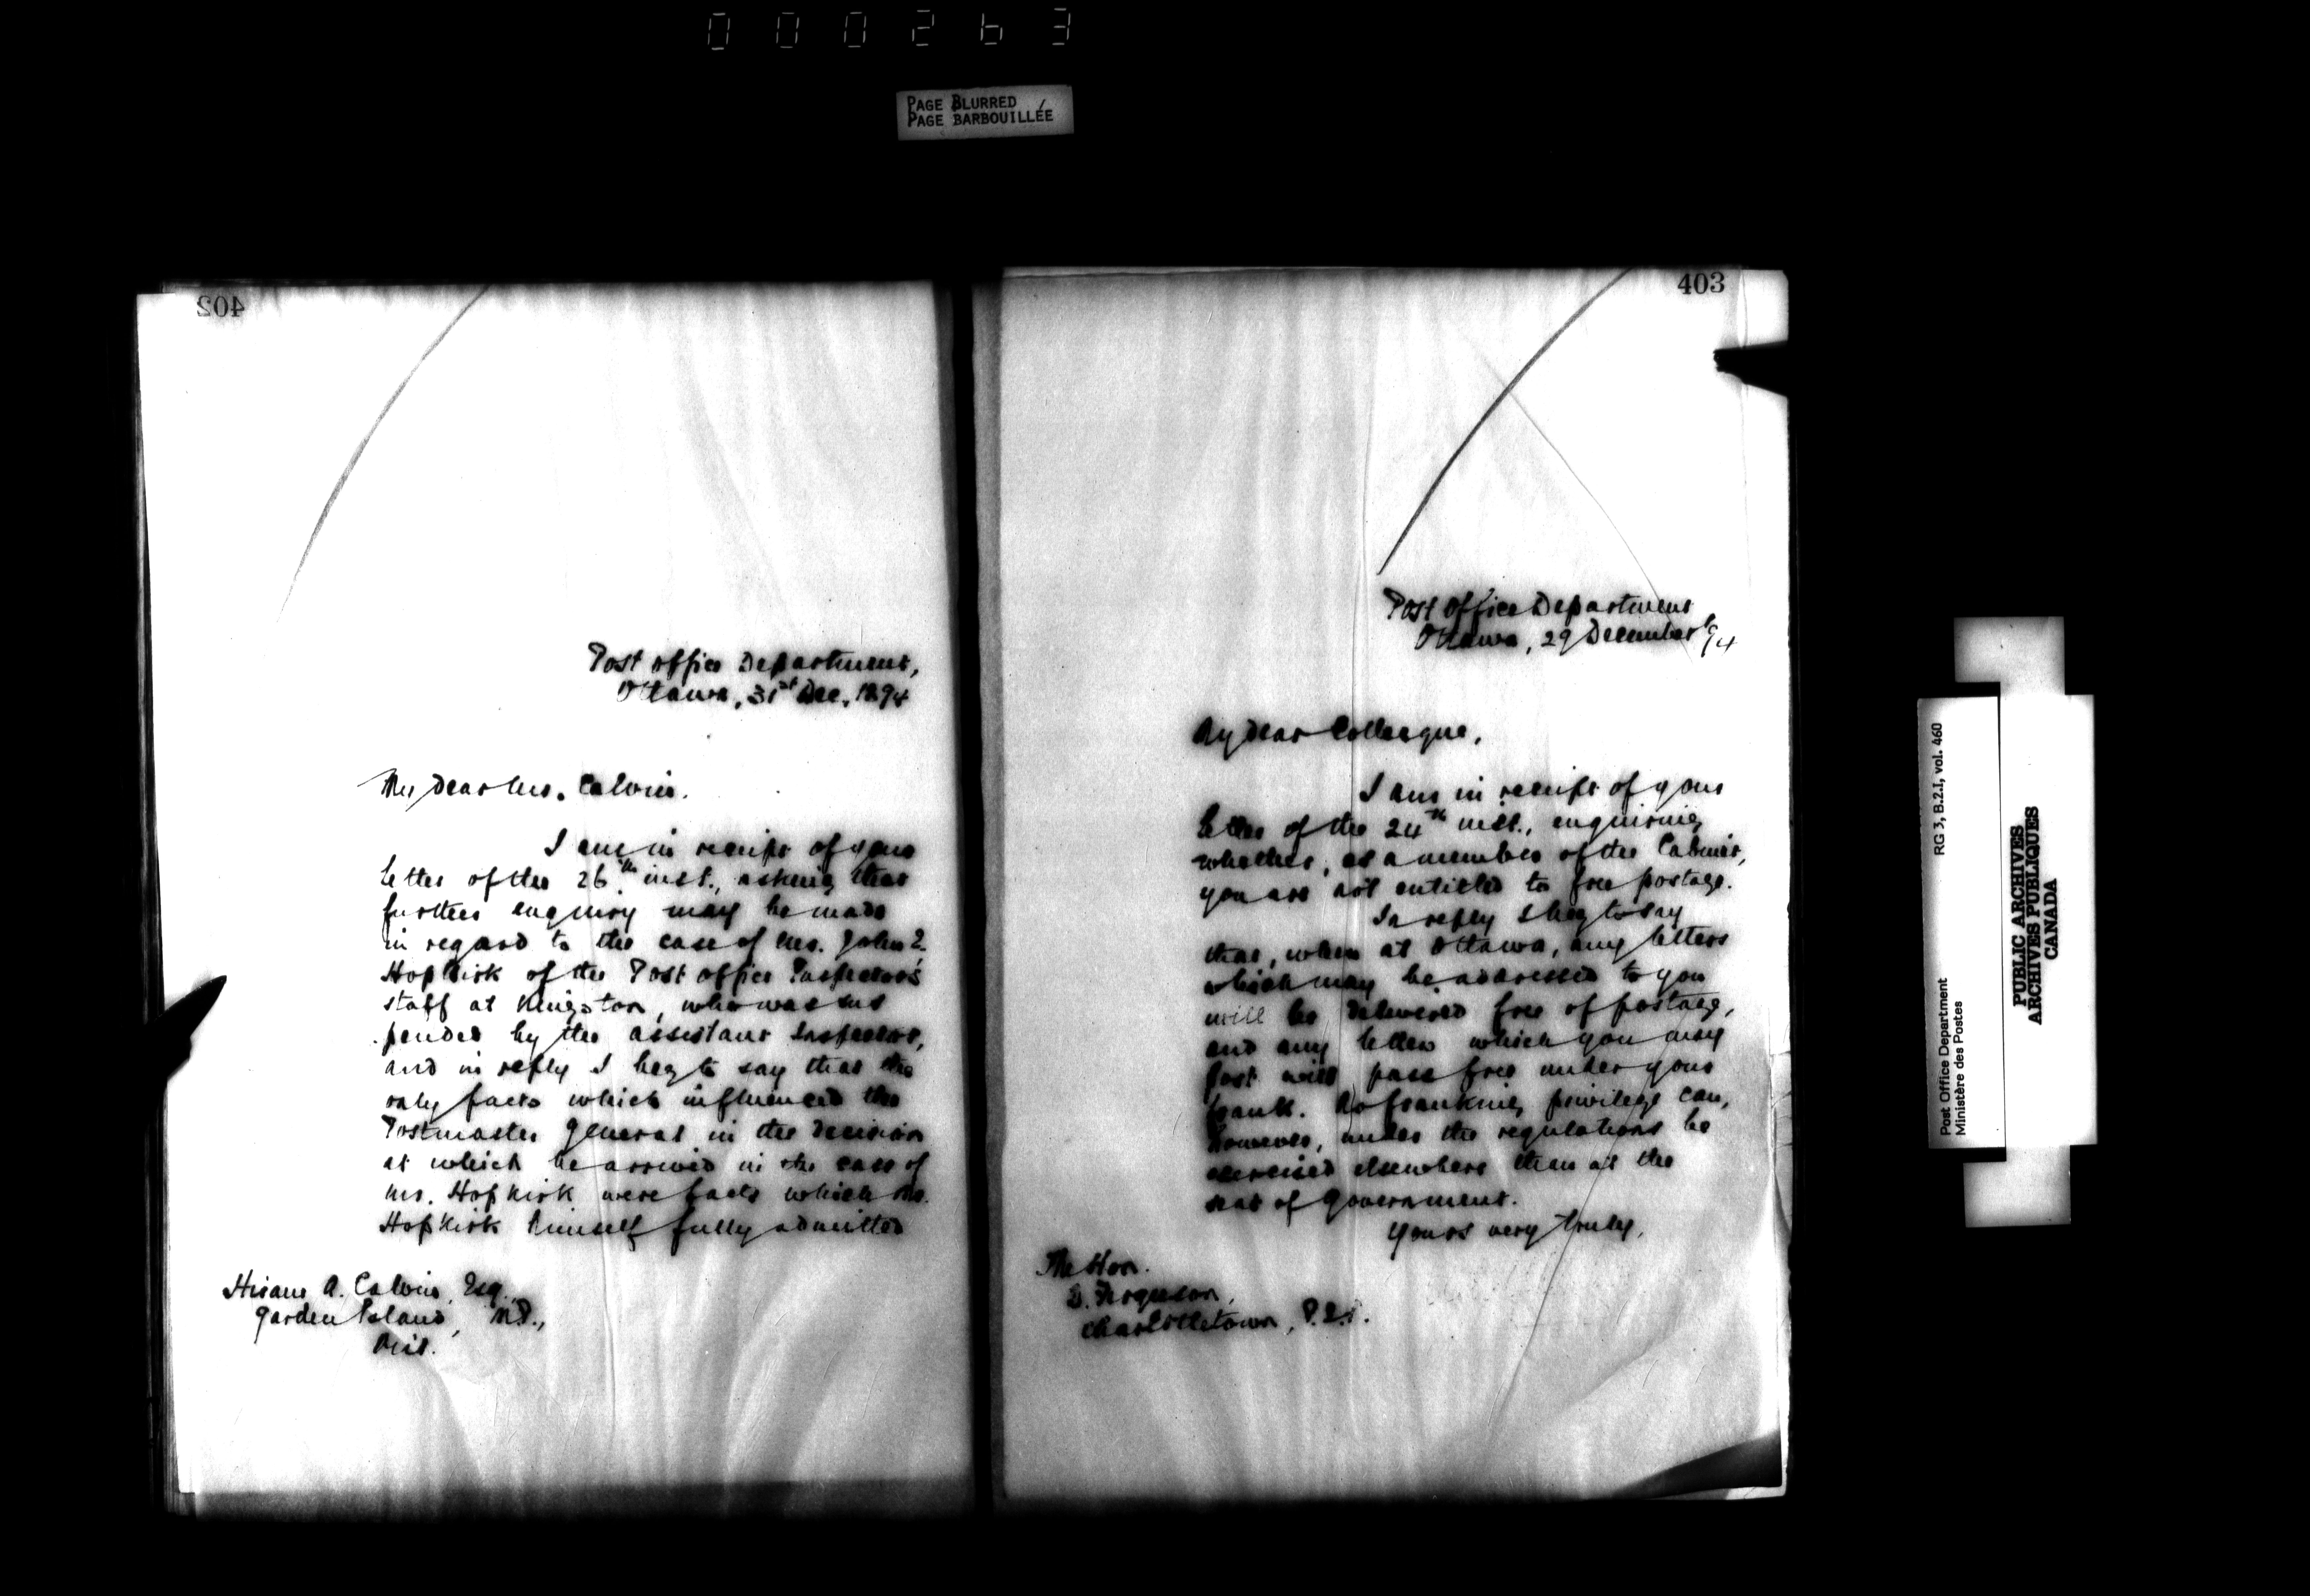 000263
PAGE BLURRED
PAGE BARBOUILLÉE
402
Post Office Department,
Ottawa, 31st Dec. 1894
My Dear Mr. Calvin.
I am in receipt of your
letter of the 26th inst., asking that
further enquiry may be made
in regard to the case of Mr. John
Hopkirk of the Post Office Inspector's
staff at Kingston, who was sus
pended by the Assistant Inspector,
and in reply I beg to say that the
only facts which influenced the
Postmaster General in the decision
at which he arrived in the case of
Mr. Hopkirk were facts which Mr.
Hopkirk himself fully admitted
Hiram A. Calvin, Esq.,
Garden Island, M.P.,
Ont.
403
Post Office Department
Ottawa, 29 December '94
My Dear Colleague,
I am in receipt of your
letter of the 24th inst., enquiring
whether, as a member of the Cabinet,
you are not entitled to free postage.
In reply I beg to say
that, when at Ottawa, any letters
which may be addressed to you
will be delivered free of postage,
and any letters which you may
post will pass free under your
frank. No franking privilege can,
however, under the regulations be
exercised elsewhere than at the
seat of Government.
Yours very truly,
The Hon.
D. Ferguson,
Charlottetown, P.E.I.
RG 3, B.2.I, vol. 460
Post Office Department
Ministère des Postes
PUBLIC ARCHIVES
ARCHIVES PUBLIQUES
CANADA